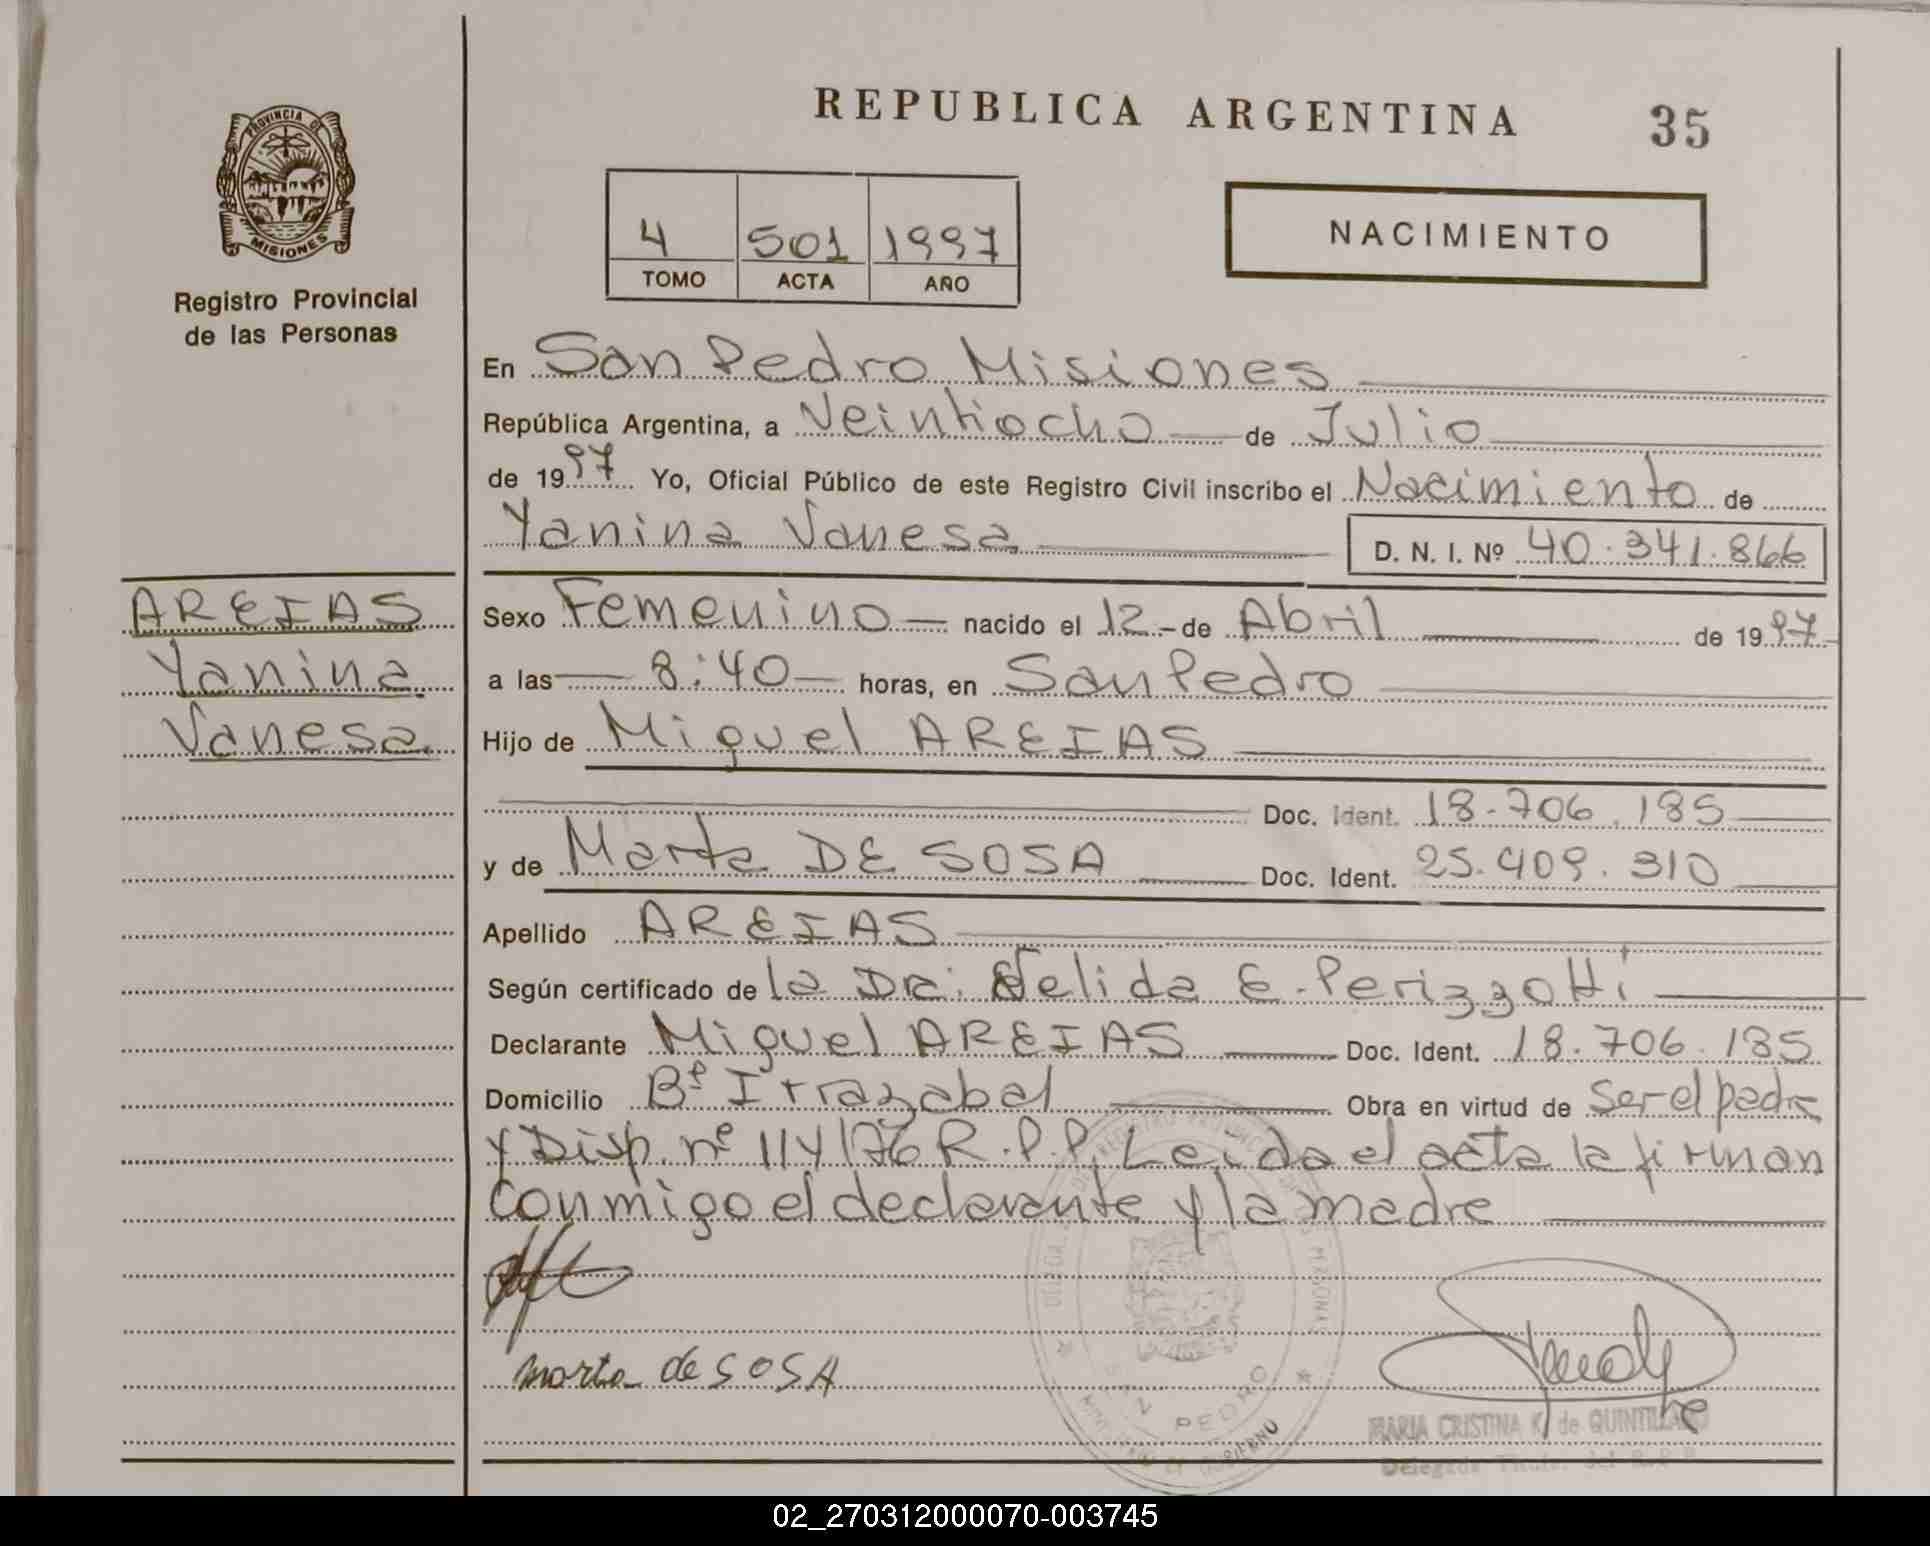 REPUBLICA ARGENTINA
35
PROVINCIA DE
MISIONES
Registro Provincial
de las Personas
4 501 1997
TOMO ACTA AÑO
NACIMIENTO
En San Pedro Misiones
República Argentina, a Veintiocho de Julio
de 1997 Yo, Oficial Público de este Registro Civil inscribo el Nacimiento de
Yanina Vanesa D. N. I. Nº 40.341.866
AREIAS
Yanina
Vanesa
Sexo Femenino nacido el 12 de Abril de 1997
a las 8:40 horas, en San Pedro
Hijo de Miguel AREIAS
Doc. Ident. 18.706.185
y de Marta DE SOSA Doc. Ident. 25.409.310
Apellido AREIAS
Según certificado de la Dra. Nelida E. Perizzotti
Declarante Miguel AREIAS Doc. Ident. 18.706.185
Domicilio Bº Irrazabal Obra en virtud de ser el padre
y Disp. nº 114/76 R.P.P. Leida el acta la firman
conmigo el declarante y la madre
marta de SOSA
SAN PEDRO
MARIA CRISTINA K. de QUINTILLANO
02_270312000070-003745